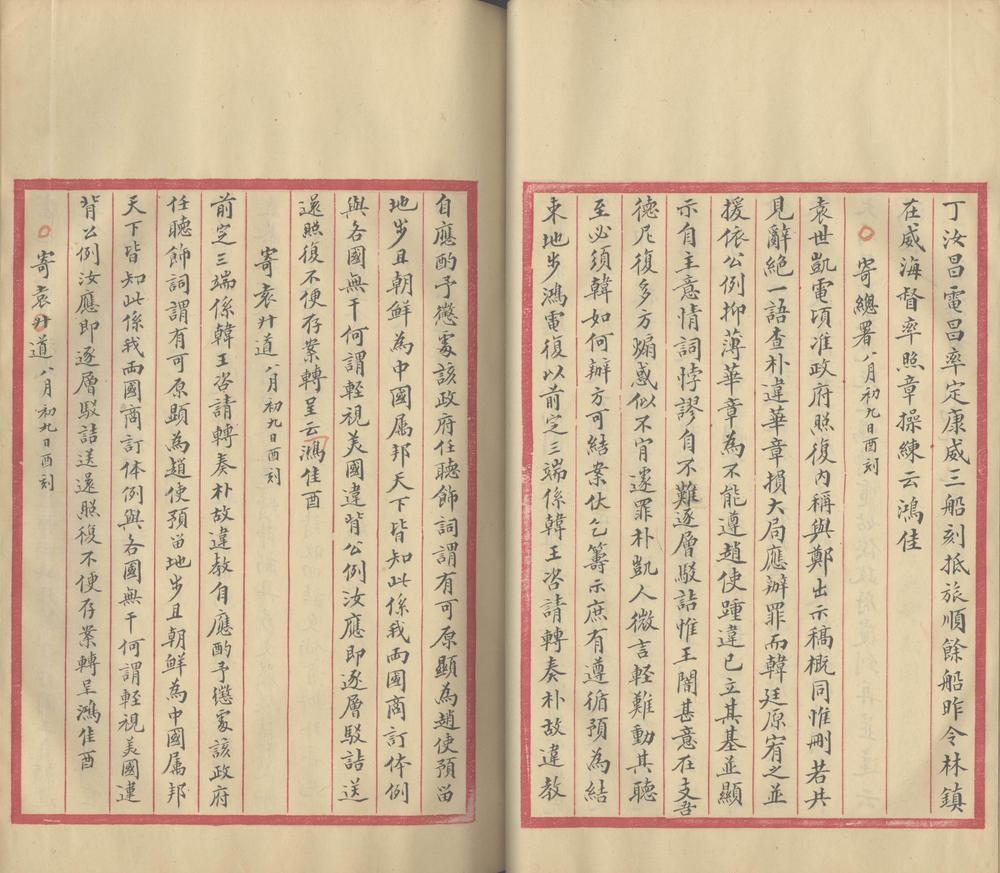 丁汝昌電昌率定康威三船刻抵旅順餘船昨令林鎮
在威海督率照章操練云鴻佳
寄總署八月初九日酉刻
袁世凱電頃准政府照復內稱與鄭出示稿概同惟刪若共
見辭絕一語查朴違華章損大局應辦罪而韓廷原宥之並
援依公例抑薄華章為不能遵趙使踵違已立其基並顯
示自主意情詞悖謬自不難逐層駁詰惟王闇甚意在支吾
德尼復多方煽惑似不肯遽罪朴凱人微言輕難動其聽
至必須韓如何辦方可結案伏乞籌示庶有遵循預為結
束地步鴻電復以前定三端係韓王咨請轉奏朴故違教
自應酌予懲處該政府任聽飾詞謂有可原顯為趙使預留
地步且朝鮮為中國属邦天下皆知此係我兩國商訂体例
與各國無干何謂輕視美國違背公例汝應即逐層駁詰送
還照復不便存案轉呈云鴻佳酉
寄袁升道八月初九日酉刻
前定三端係韓王咨請轉奏朴故違教自應酌予懲處該政府
任聽飾詞謂有可原顯為趙使預留地步且朝鮮為中國属邦
天下皆知此係我兩國商訂体例與各國無干何謂輕視美國違
背公例汝應即逐層駁詰送還照復不便存案轉呈鴻佳酉
寄袁升道八月初九日酉刻